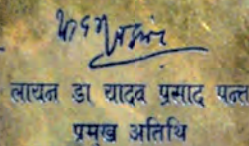 लायन डा यादव प्रसाद पन्त
प्रमुख अतिथि